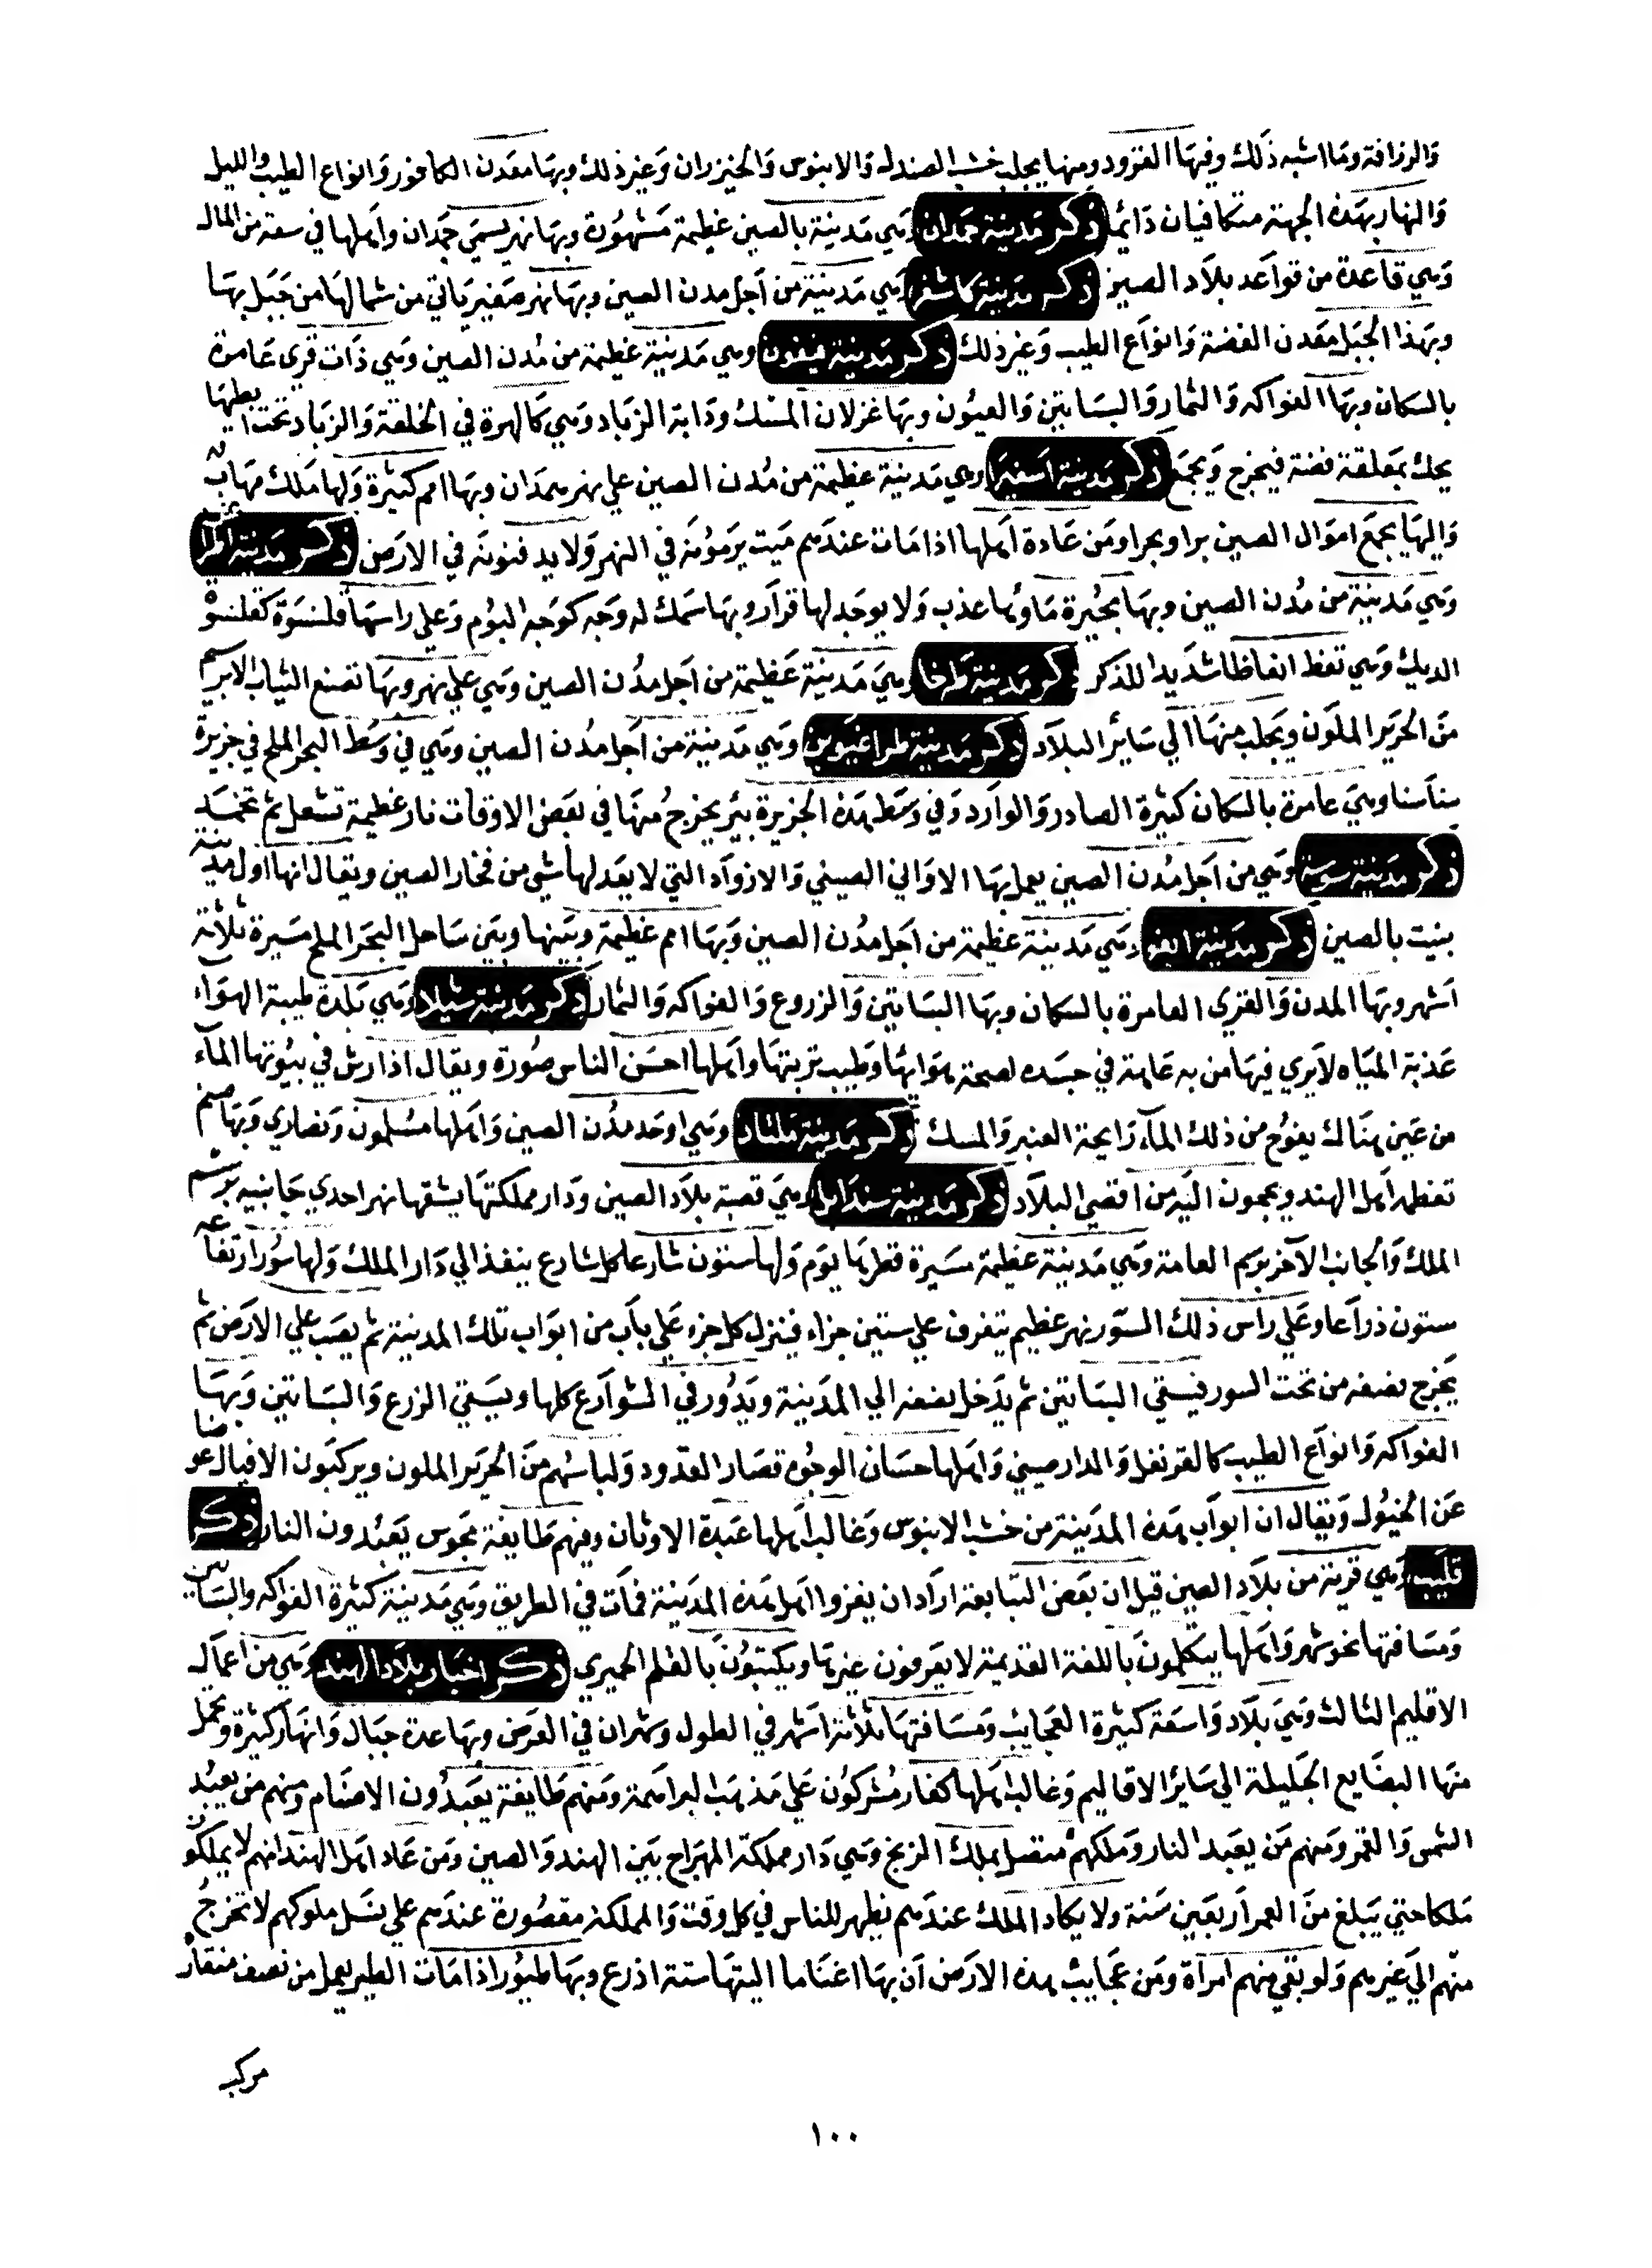 والزرافة وما اشبه ذلك وفيها القرود ومنها يجلب خشب الصندل والابنوس والخيزران وغير ذلك وبها معدن الكافور وانواع الطيب والليل
والنهار بهذه الجهة متكافيان دائما ذكر مدينة حمدان وهي مدينة بالصين عظيمة مشهورة وبها نهر يسمي حمدان واهلها في سعة من المال
وهي قاعدة من قواعد بلاد الصين ذكر مدينة كاشغر وهي مدينة من اجل مدن الصين وبها نهر صغير ياتي من شمالها من جبل بها
وبهذا الجبل معدن الفضة وانواع الطيب وغير ذلك ذكر مدينة خيغون وهي مدينة عظيمة من مدن الصين وهي ذات قري عامرة
بالسكان وبها الفواكه والثمار والبساتين والعيون وبها غزلان المسك ودابة الزباد وهي كالهرة في الخلقة والزباد تحت ابطها
يحك بمعلقة فضة فيخرج ويجمع ذكر مدينة اسفيرا وهي مدينة عظيمة من مدن الصين علي نهر همدان وبها امم كثيرة ولها ملك مهاب
واليها يجمع اموال الصين برا وبحرا ومن عادة اهلها اذا مات عندهم ميت يرموه في النهر ولا يدفنونه في الارض ذكر مدينة
وهي مدينة من مدن الصين وبها بحيرة ماؤها عذب ولا يوجد لها قرار وبها سمك له وجه كوجه البوم وعلي راسها قلنسوة كقلنسوة
الديك وهي تغظ انغاظا شديدا للذكر ذكر مدينة وهي مدينة عظيمة من اجل مدن الصين وهي علي نهر وبها تصنع الثياب الابريسم
من الحرير الملون ويجلب منها الي سائر البلاد ذكر مدينة طراغيون وهي مدينة من اجل مدن الصين وهي في وسط البحر الملح في جزيرة
سناسنا وهي عامرة بالسكان كثيرة الصادر والوارد وفي وسط هذه الجزيرة بئر يخرج منها في بعض الاوقات نار عظيمة تشعل ثم تخمد
ذكر مدينة سوسة وهي من اجل مدن الصين يعمل بها الاواني الصيني والازواد التي لا يعدلها شي من فخار الصين ويقال انها اول مدينة
بنيت بالصين ذكر مدينة وهي مدينة عظيمة من اجل مدن الصين وبها امم عظيمة وبينها وبين ساحل البحر الملح مسيرة ثلاثة
اشهر وبها المدن والقري العامرة بالسكان وبها البساتين والزروع والفواكه والثمار ذكر مدينة شيلا وهي بلدة طيبة الهواء
عذبة المياه لا يري فيها من به عاهة في جسده لصحة هوائها وطيب تربتها واهلها احسن الناس صورة ويقال اذا رش في بيوتها الماء
من عين هنالك يفوح من ذلك الماء رايحة العنبر والمسك ذكر مدينة ملنار وهي اوحد مدن الصين واهلها مسلمون ونصاري وبها صنم
تعظمه اهل الهند ويحجون اليه من اقصي البلاد ذكر مدينة سندابل وهي قصبة بلاد الصين ودار مملكتها يشقها نهر احدي جانبيه برسم
الملك والجانب الآخر برسم العامة وهي مدينة عظيمة مسيرة قطرها يوم ولها ستون شارعا كل شارع ينفذ الي دار الملك ولها سور ارتفاعه
ستون ذراعا وعلي راس ذلك السور نهر عظيم يتفرق علي ستين جزاء فينزل كل جزء علي باب من ابواب تلك المدينة ثم يصب علي الارض ثم
يخرج نصفه من تحت السور فيسقي البساتين ثم يدخل نصفه الي المدينة ويدور في الشوارع كلها ويسقي الزرع والبساتين وبها
الفواكه وانواع الطيب كالقرنفل والدارصيني واهلها حسان الوجوه قصار القدود ولباسهم من الحرير الملون ويركبون الافيال عوضا
عن الخيول ويقال ان ابواب هذه المدينة من خشب الابنوس وغالب اهلها عبدة الاوثان وفيهم طايفة مجوس يعبدون النار ذكر
قليب وهي قرية من بلاد الصين قيل ان بعض التبابعة اراد ان يغزوا اهل هذه المدينة فمات في الطريق وهي مدينة كثيرة الفواكه والبساتين
ومسافتها نحو شهر واهلها يتكلمون باللغة القديمة لا يعرفون غيرها ويكتبون بالقلم الحميري ذكر اخبار بلاد الهند وهي من اعمال
الاقليم الثالث وهي بلاد واسعة كثيرة العجايب ومسافتها ثلاثة اشهر في الطول وشهران في العرض وبها عدة جبال وانهار كثيرة ويحمل
منها البضايع الجليلة الي سائر الاقاليم وغالب اهلها كفار مشركون علي مذهب البراهمة ومنهم طايفة يعبدون الاصنام ومنهم من يعبد
الشمس والقمر ومنهم من يعبد النار وملكهم متصل بملك الزنج وهي دار مملكة المهراج بين الهند والصين ومن عاد اهل الهند انهم لا يملكون
ملكا حتي يبلغ من العمر اربعين سنة ولا يكاد الملك عندهم يظهر للناس في كل وقت والمملكة مقصورة عندهم علي نسل ملوكهم لا تخرج
منهم الي غيرهم ولو بقي منهم امرآة ومن عجايب هذه الارض ان بها اغناما اليتها ستة اذرع وبها طيور اذا مات الطير يعمل من نصف منقاره
مركب
١٠٠